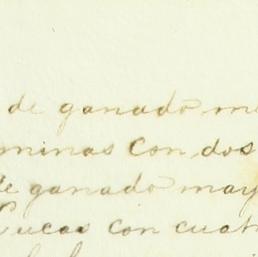 de ganado me
minas con dos
de ganado may
Lucas con cuat